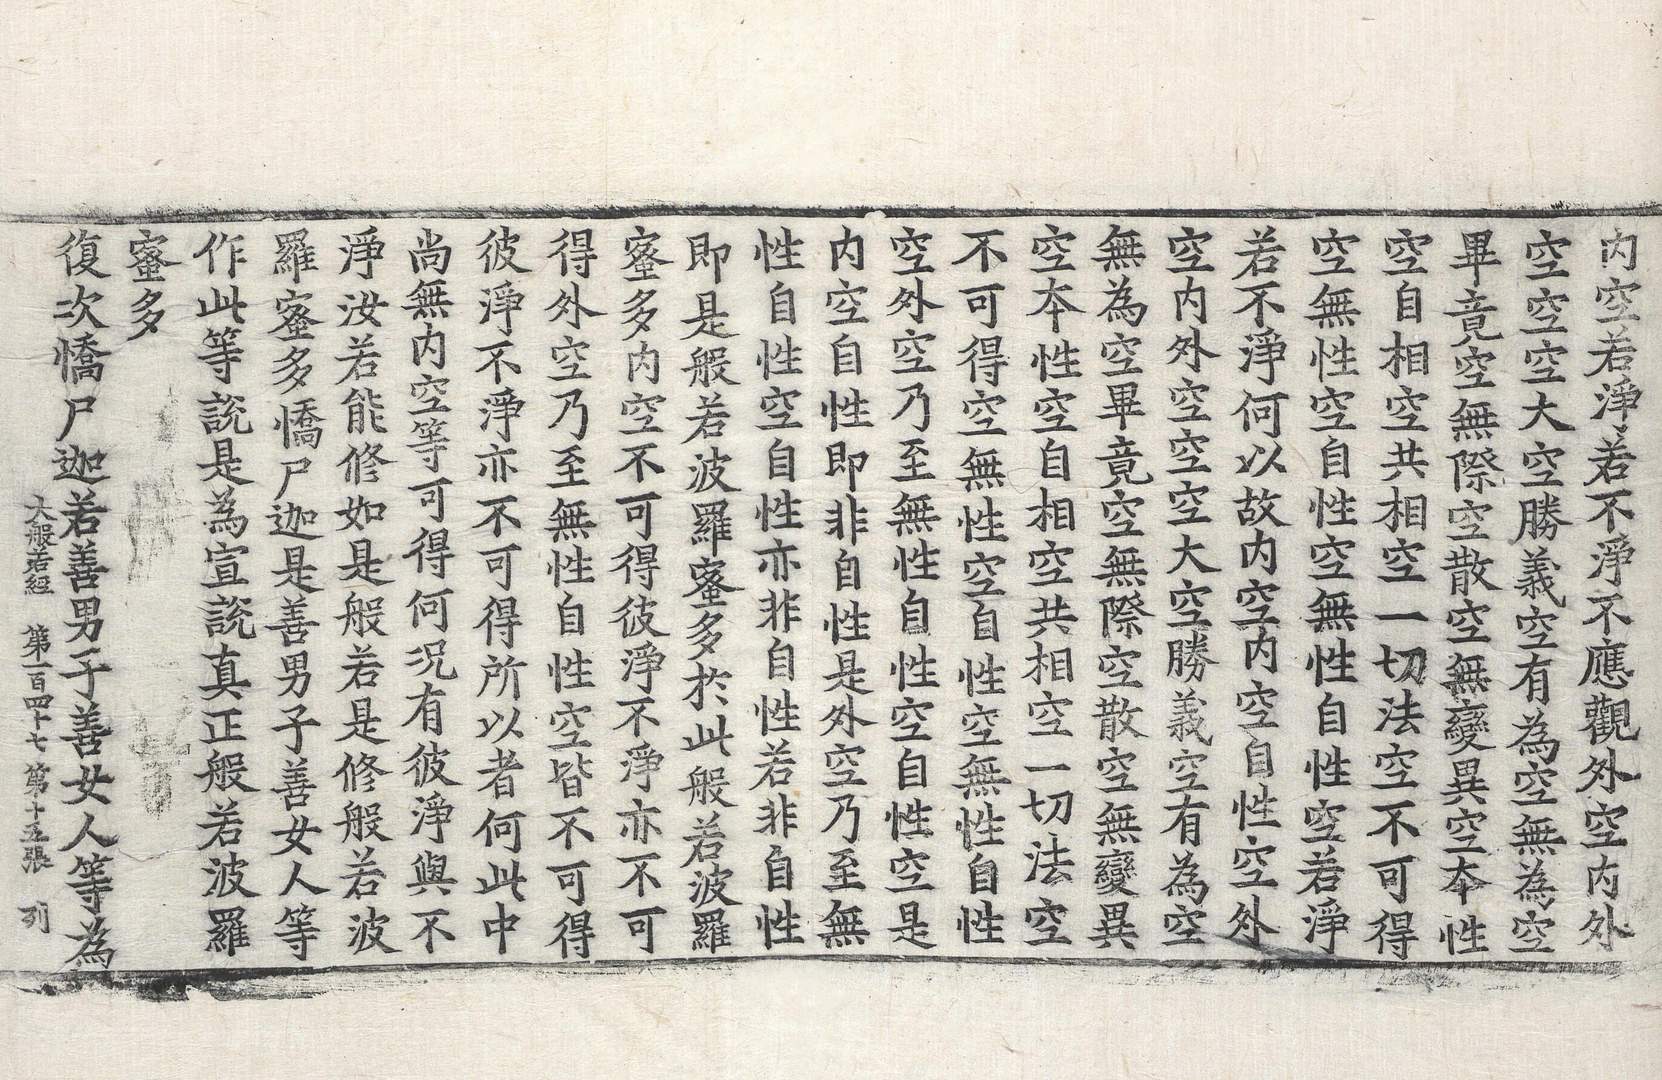 内空若淨若不淨不應觀外空内外
空空空大空勝義空有為空無為空
畢竟空無際空散空無變異空本性
空自相空共相空一切法空不可得
空無性空自性空無性自性空若淨
若不淨何以故内空内空自性空外
空内外空空空大空勝義空有為空
無為空畢竟空無際空散空無變異
空本性空自相空共相空一切法空
不可得空無性空自性空無性自性
空外空乃至無性自性空自性空是
内空自性即非自性是外空乃至無
性自性空自性亦非自性若非自性
即是般若波羅蜜多於此般若波羅
蜜多内空不可得彼淨不淨亦不可
得外空乃至無性自性空皆不可得
彼淨不淨亦不可得所以者何此中
尚無内空等可得何況有彼淨與不
淨汝若能修如是般若是修般若波
羅蜜多憍尸迦是善男子善女人等
作此等說是為宣說真正般若波羅
蜜多
復次憍尸迦若善男子善女人等為
大般若經 第一百四十七 第十五張 列